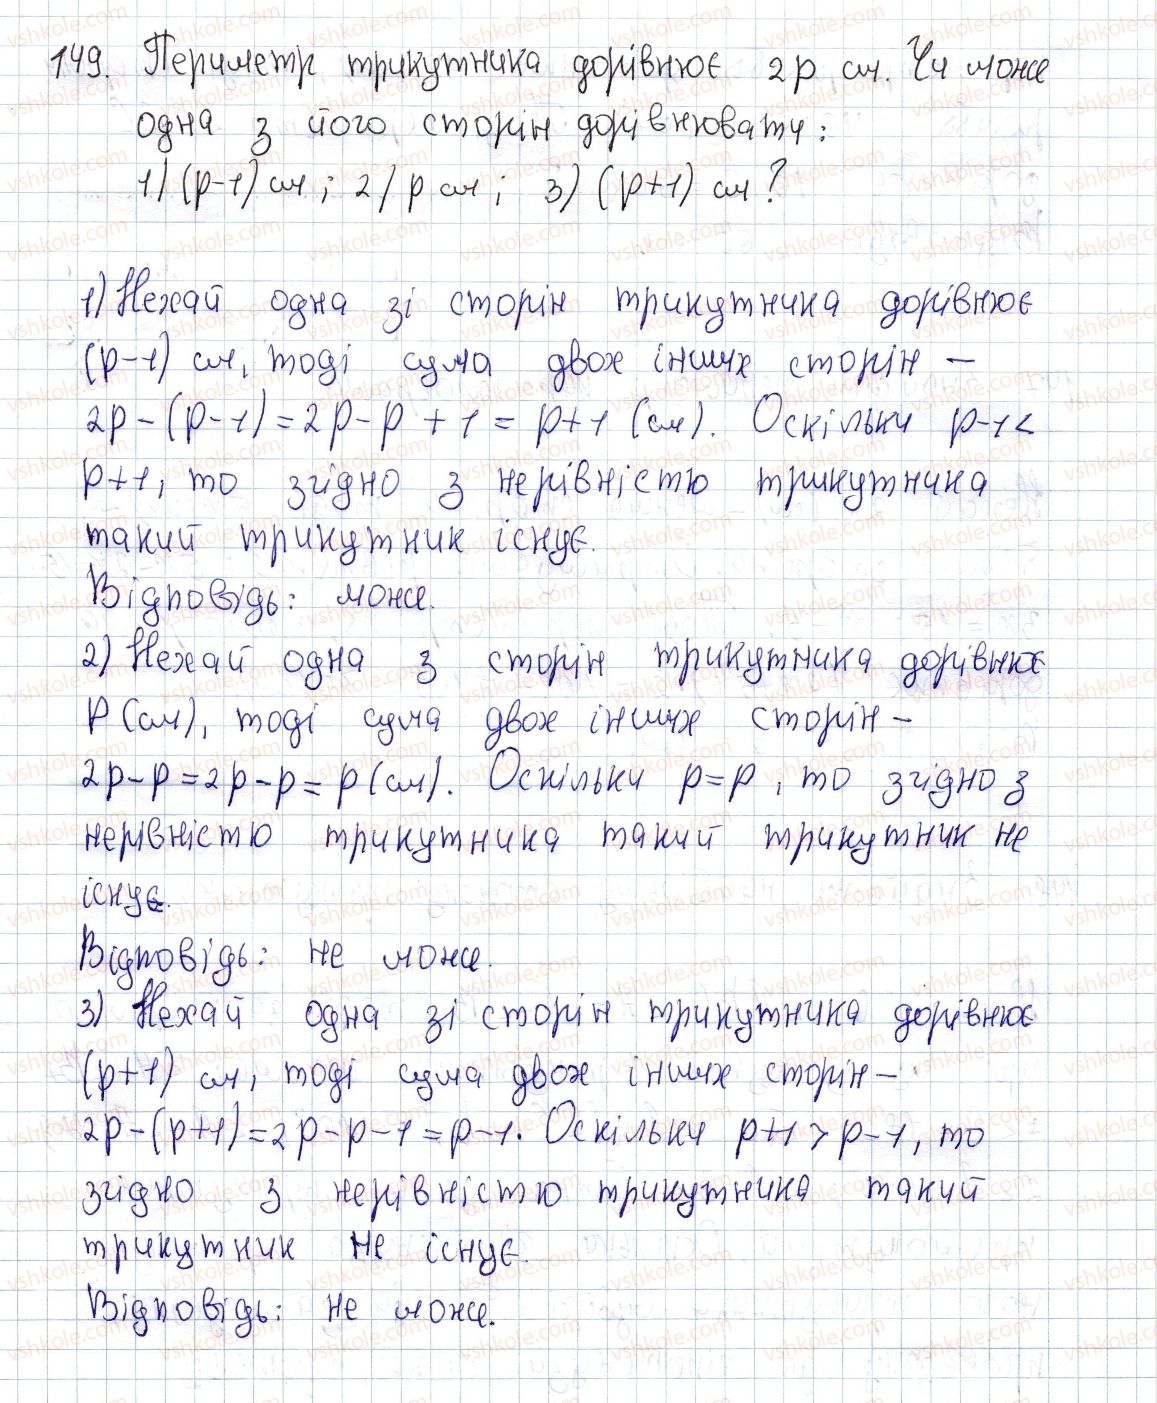 149. Периметр трикутника дорівнює 2p см. Чи може
одна з його сторін дорівнювати:
1) (p-1) см; 2) p см; 3) (p+1) см?
1) Нехай одна зі сторін трикутника дорівнює
(p-1) см, тоді сума двох інших сторін –
2p-(p-1)=2p-p+1=p+1 (см). Оскільки p-1<
p+1, то згідно з нерівністю трикутника
такий трикутник існує.
Відповідь: може.
2) Нехай одна з сторін трикутника дорівнює
p (см), тоді сума двох інших сторін –
2p-p=2p-p=p (см). Оскільки p=p, то згідно з
нерівністю трикутника такий трикутник не
існує.
Відповідь: не може.
3) Нехай одна зі сторін трикутника дорівнює
(p+1) см, тоді сума двох інших сторін –
2p-(p+1)=2p-p-1=p-1. Оскільки p+1>p-1, то
згідно з нерівністю трикутника такий
трикутник не існує.
Відповідь: не може.